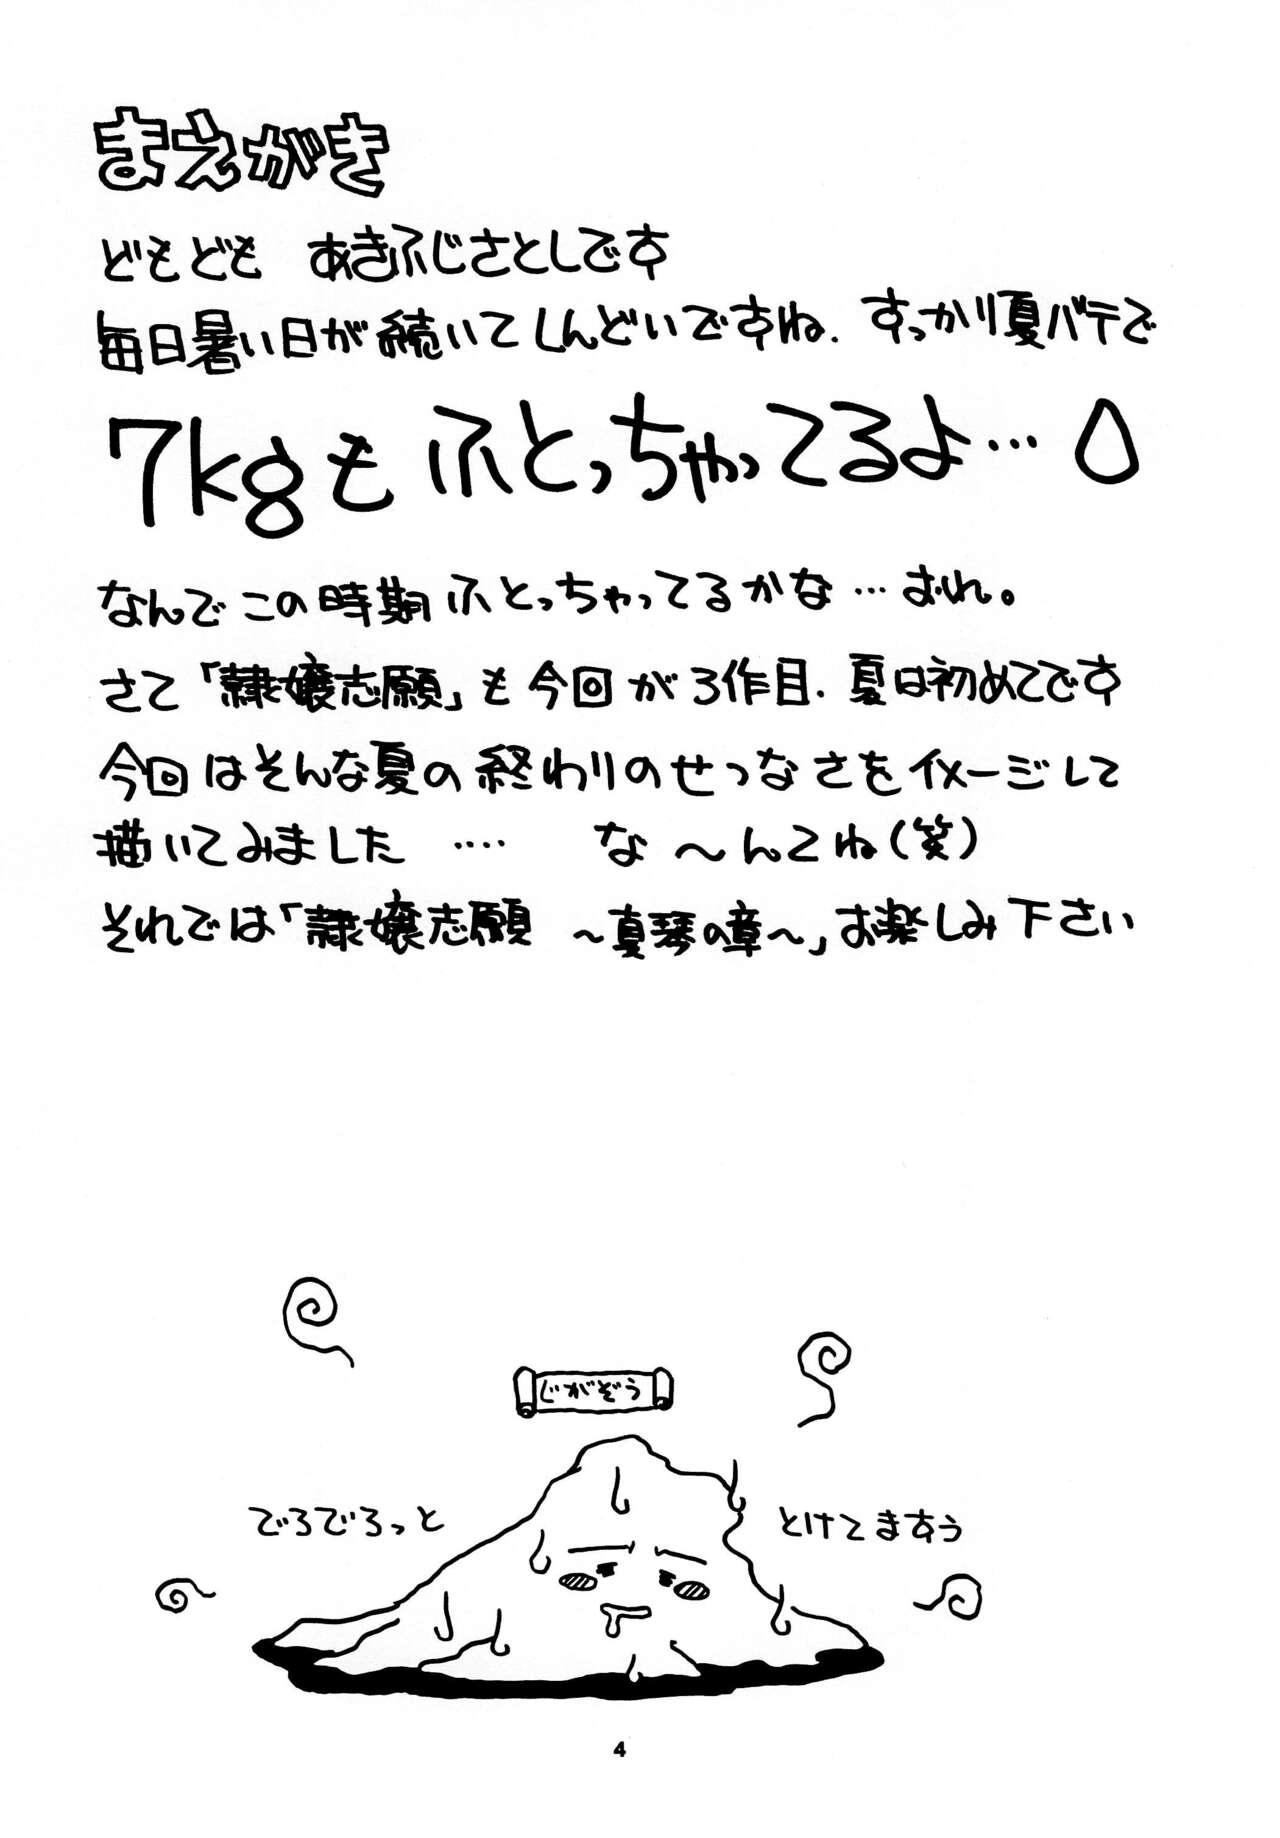 まえがき
どもども あきふじさとしです
毎日暑い日が続いてしんどいですね. すっかり夏バテで
7kgもふとっちゃってるよ…
なんでこの時期ふとっちゃってるかな…おれ。
さて「隷嬢志願」も今回が3作目. 夏は初めてです
今回はそんな夏の終わりのせつなさをイメージして
描いてみました …‥ な〜んてね(笑)
それでは「隷嬢志願 〜真琴の章〜」お楽しみ下さい
じがぞう
でろでろっと
とけてますぅ
4